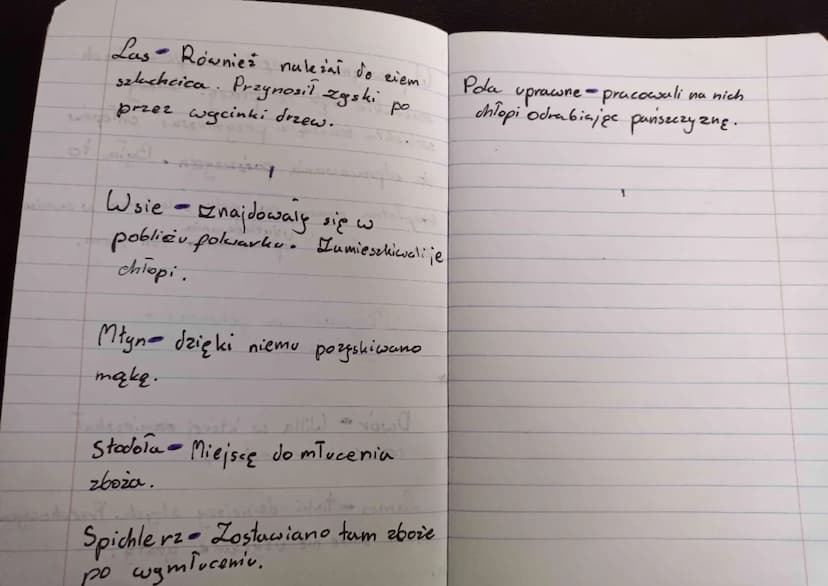 Las - Również należał do ziem
szlachcica. Przynosił zyski po
przez wycinki drzew.
Wsie - Znajdowały się w
pobliżu folwarku. Zamieszkiwali je
chłopi.
Młyn - dzięki niemu pozyskiwano
mąkę.
Stodoła - Miejscę do młucenia
zboża.
Spichlerz - Zostawiano tam zboże
po wymłuceniu.
Pola uprawne - pracowali na nich
chłopi odrabiając pańszczyznę.